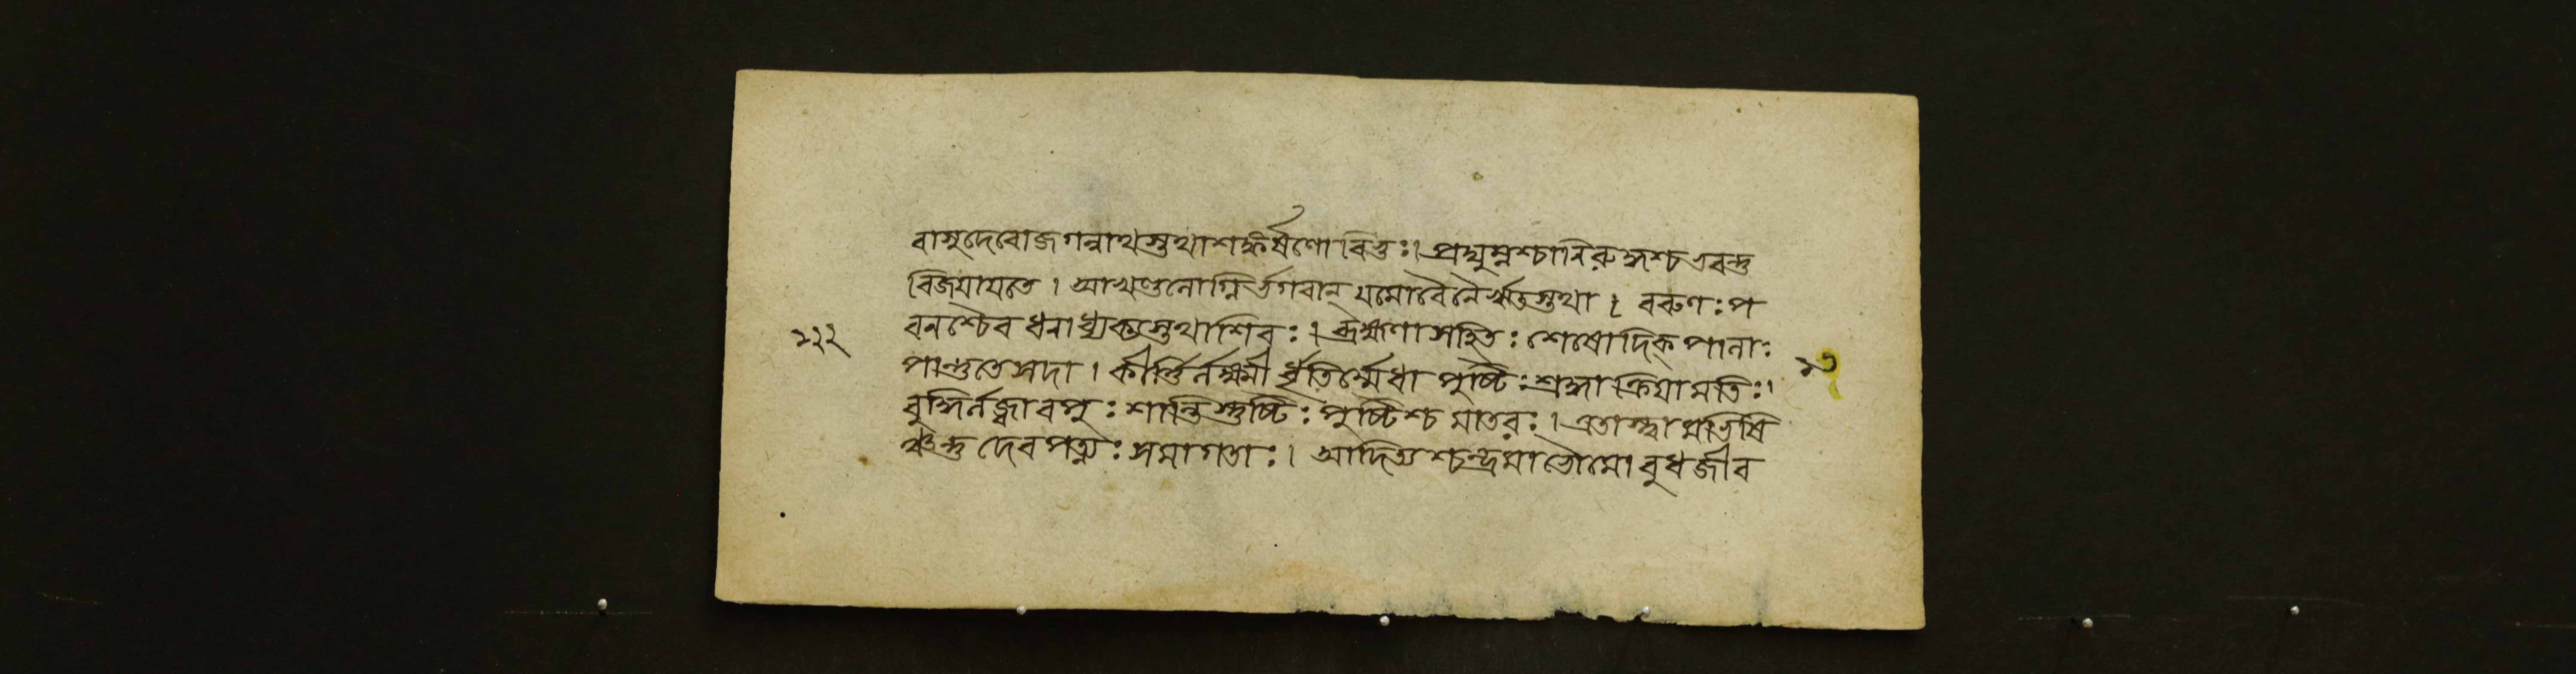 বাসুদেবোজগন্নাথস্তথাশঙ্কর্ষণোবিভুঃ। প্রদ্যুম্নশ্চানিরুদ্ধশ্চভবন্তু
বিজয়ায়তে। আখণ্ডলোগ্নির্ভগবান্ যমোবৈনৈর্ঋতস্তথা। বরুণঃপ
বনশ্চৈবধনাধ্যক্ষস্তথাশিবঃ। ব্রহ্মণাসহিতঃশেষোদিক্পালাঃ
পান্তুতেসদা। কীর্ত্তির্লক্ষ্মীর্ধৃতির্ম্মেধাপুষ্টিঃশ্রদ্ধাক্রিয়ামতিঃ।
বুদ্ধির্লজ্জাবপুঃশান্তিস্তুষ্টিঃপুষ্টিশ্চমাতরঃ। এতাস্ত্বামভিষি
ঞ্চন্তুদেবপত্ন্যঃসমাগতাঃ। আদিত্যশ্চন্দ্রমাভৌমোবুধর্জীব